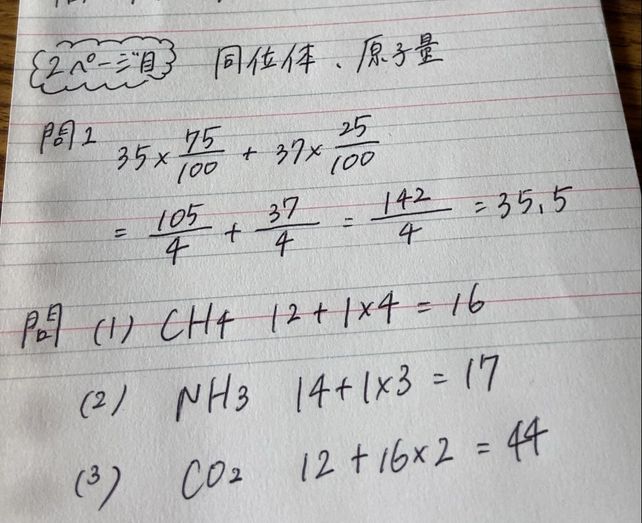 2ページ目 同位体、原子量
問1 35×75/100 + 37×25/100
= 105/4 + 37/4 = 142/4 = 35.5
問 (1) CH4 12+1×4 = 16
(2) NH3 14+1×3 = 17
(3) CO2 12+16×2 = 44